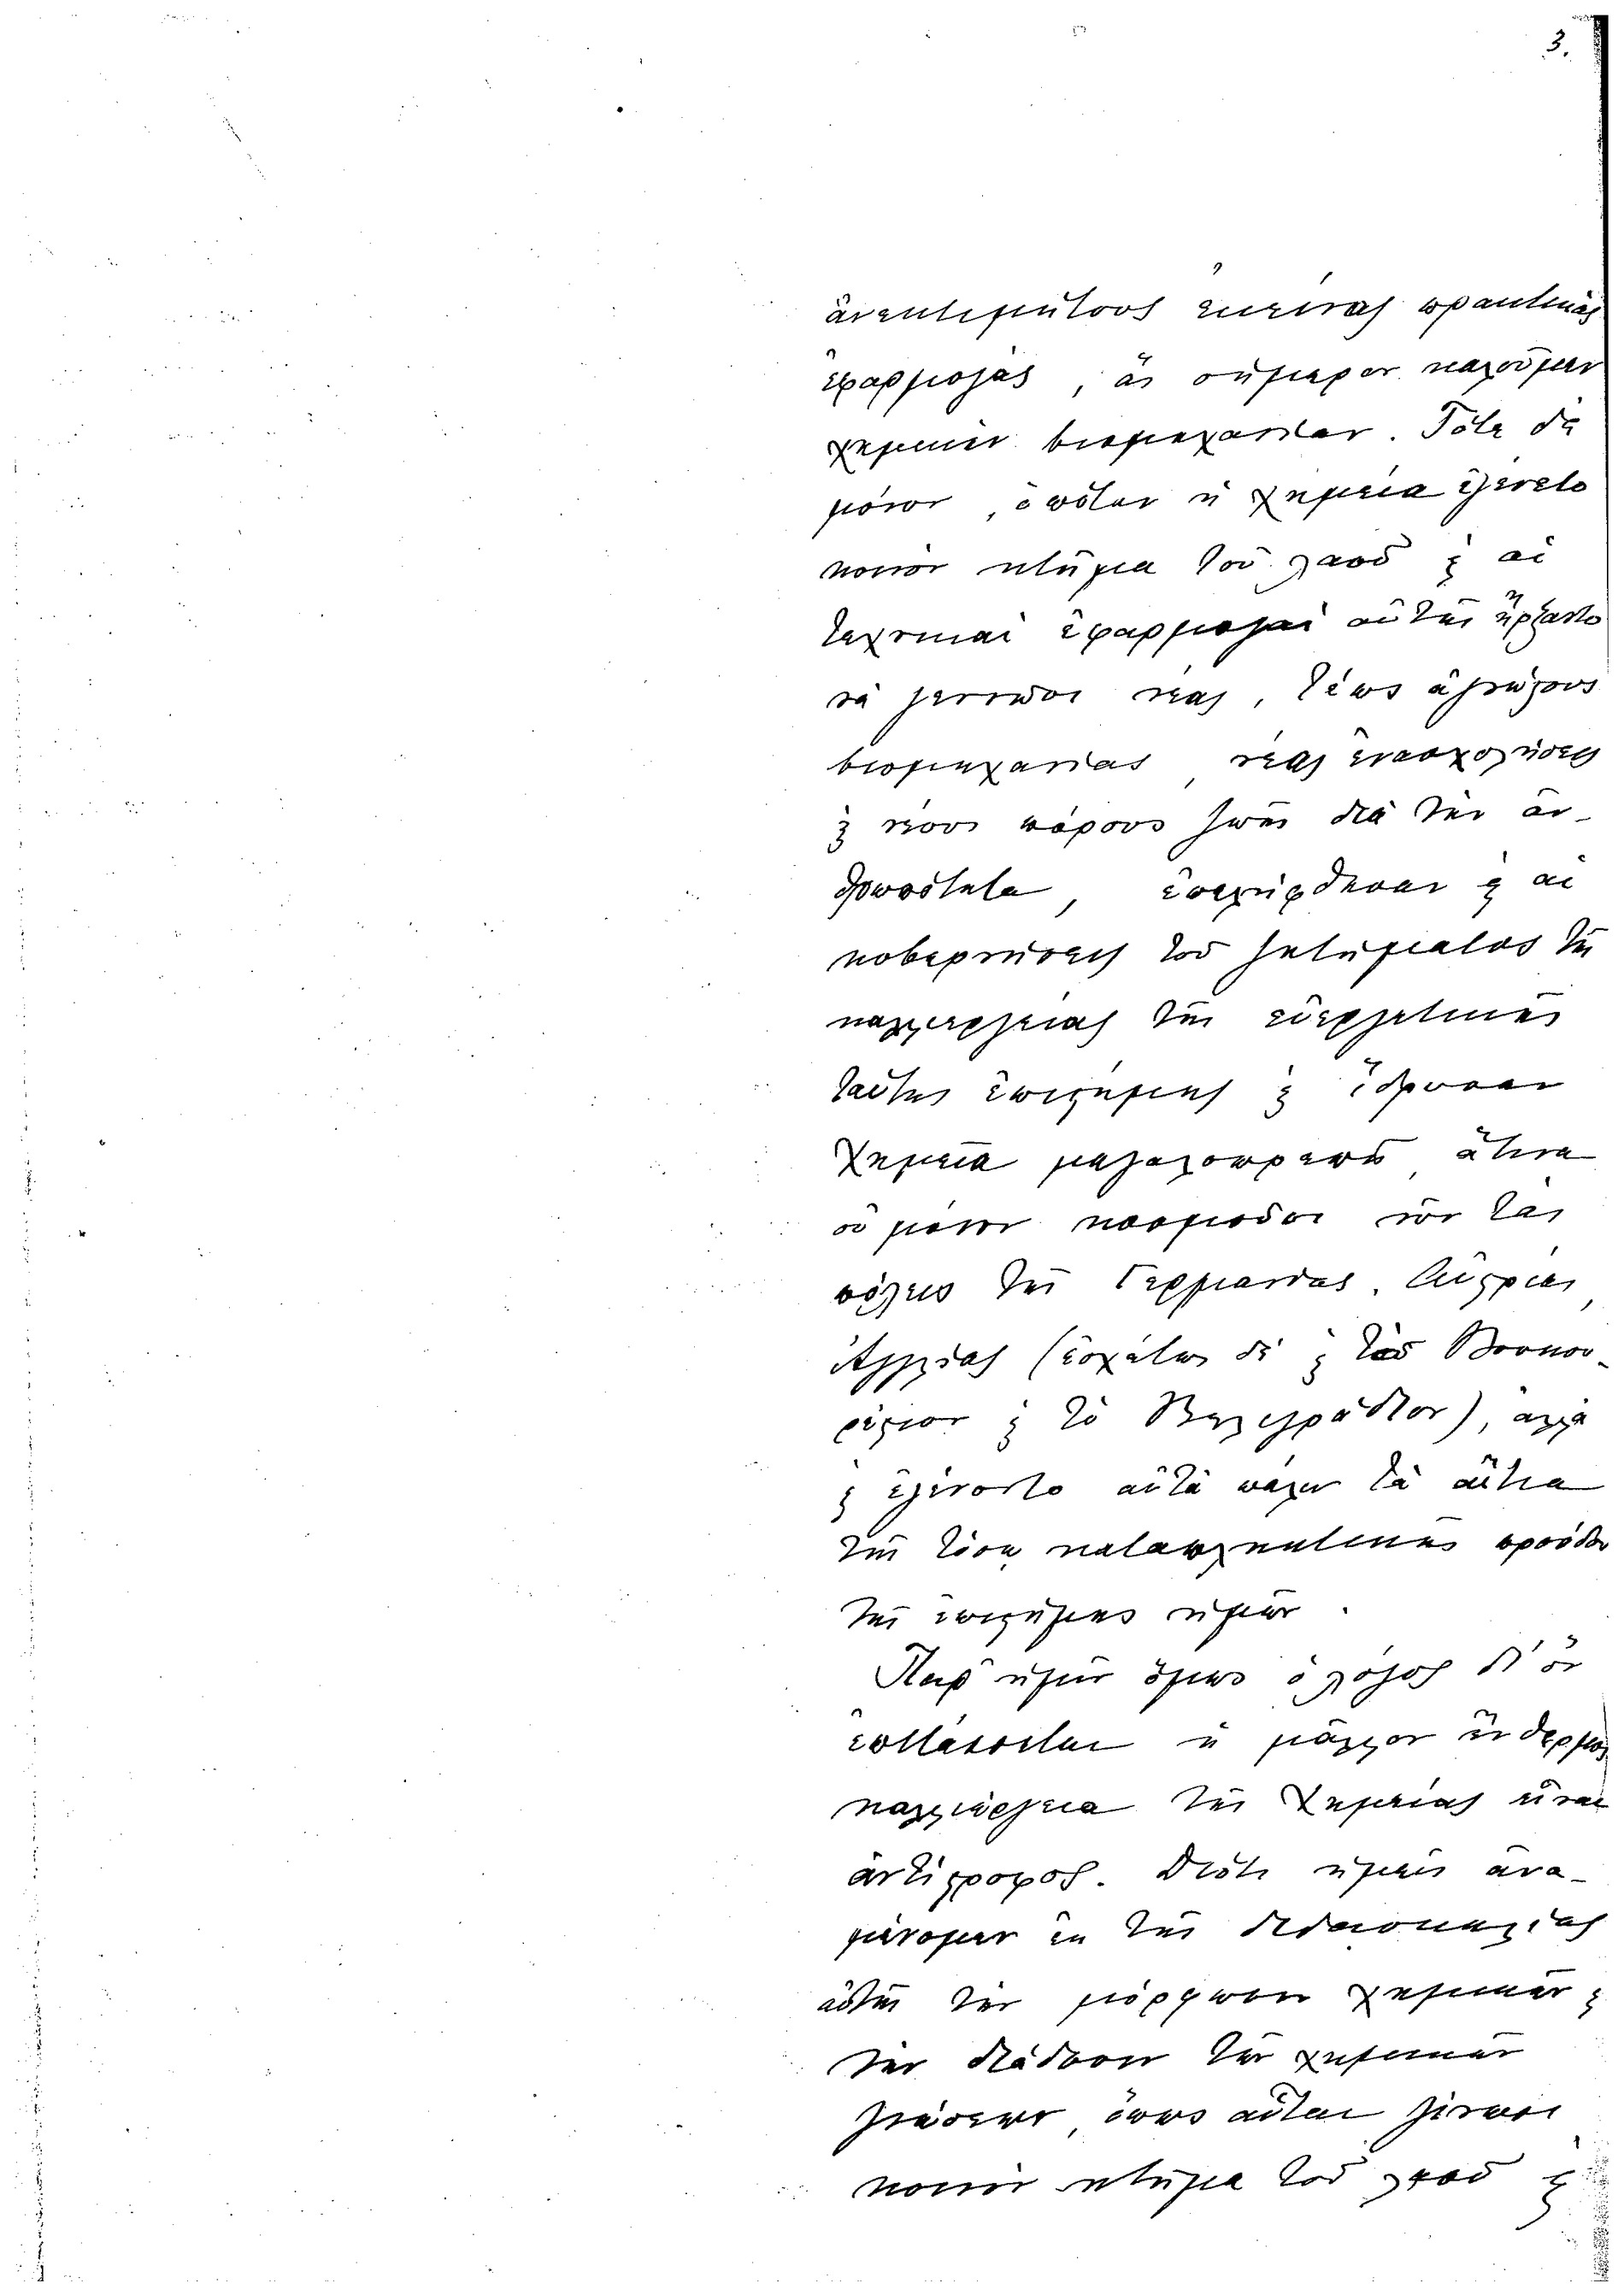 3.
ἀνεκτιμήτους ἐκείνας πρακτικὰς
ἐφαρμογάς, ἃς σήμερον καλοῦμεν
χημικὴν βιομηχανίαν. Τότε δὲ
μόνον, ὁπόταν ἡ χημεία ἐγένετο
κοινὸν κτῆμα τοῦ λαοῦ ϗ αἱ
τεχνικαὶ ἐφαρμογαὶ αὐτῆς ἤρξαντο
νὰ γεννῶσι νέας, τέως ἀγνώστους
βιομηχανίας, νέας ἐνασχολήσεις
ϗ νέους πόρους ζωῆς διὰ τὴν ἀν-
θρωπότητα, ἐπελήφθησαν ϗ αἱ
κυβερνήσεις τοῦ ζητήματος τῆς
καλλιεργείας τῆς εὐεργετικῆς
ταύτης ἐπιστήμης ϗ ἵδρυσαν
Χημεῖα μεγαλοπρεπῆ, ἅτινα
οὐ μόνον κοσμοῦσι νῦν τὰς
πόλεις τῆς Γερμανίας, Αὐστρίας,
Ἀγγλίας (ἐσχάτως δὲ ϗ τὸ Βουκου-
ρέστιον ϗ τὸ Βελιγράδιον), ἀλλὰ
ϗ ἐγένοντο αὐτὰ πάλιν τὰ αἴτια
τῆς τόσῳ καταπληκτικῆς προόδου
τῆς ἐπιστήμης ἡμῶν.
Παρ' ἡμῖν ὅμως ὁ λόγος δι' ὃν
ἐπιτάσσεται ἡ μᾶλλον ἔνθερμος
καλλιέργεια τῆς Χημείας εἶναι
ἀντίστροφος. Διότι ἡμεῖς ἀνα-
μένομεν ἐκ τῆς διδασκαλίας
αὐτῆς τὴν μόρφωσιν χημικῶν ϗ
τὴν διάδοσιν τῶν χημικῶν
γνώσεων, ὅπως αὗται γίνωσι
κοινὸν κτῆμα τοῦ λαοῦ ϗ